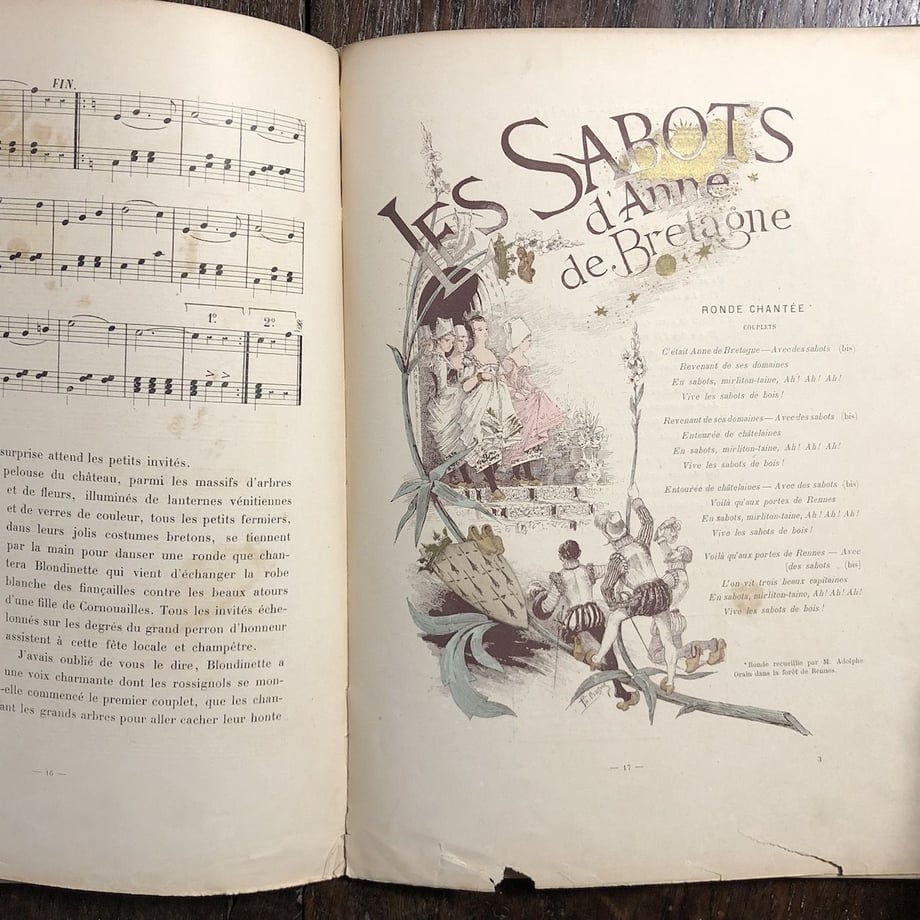 FIN.
1º.
2º.
surprise attend les petits invités.
pelouse du château, parmi les massifs d'arbres
et de fleurs, illuminés de lanternes vénitiennes
et de verres de couleur, tous les petits fermiers,
dans leurs jolis costumes bretons, se tiennent
par la main pour danser une ronde que chan-
tera Blondinette qui vient d'échanger la robe
blanche des fiançailles contre les beaux atours
d'une fille de Cornouailles. Tous les invités éche-
lonnés sur les degrés du grand perron d'honneur
assistent à cette fête locale et champêtre.
J'avais oublié de vous le dire, Blondinette a
une voix charmante dont les rossignols se mon-
-elle commencé le premier couplet, que les chan-
ant les grands arbres pour aller cacher leur honte
— 16 —
LES SABOTS
d'Anne
de Bretagne
RONDE CHANTÉE*
COUPLETS
C'était Anne de Bretagne — Avec des sabots (bis)
Revenant de ses domaines
En sabots, mirliton-taine, Ah! Ah! Ah!
Vive les sabots de bois!
Revenant de ses domaines — Avec des sabots (bis)
Entourée de châtelaines
En sabots, mirliton-taine, Ah! Ah! Ah!
Vive les sabots de bois!
Entourée de châtelaines — Avec des sabots (bis)
Voilà qu'aux portes de Rennes
En sabots, mirliton-taine, Ah! Ah! Ah!
Vive les sabots de bois!
Voilà qu'aux portes de Rennes — Avec
[des sabots . (bis]
L'on vit trois beaux capitaines
En sabots, mirliton-taine, Ah! Ah! Ah!
Vive les sabots de bois!
*Ronde recueillie par M. Adolphe
Orain dans la forêt de Rennes.
— 17 —
3